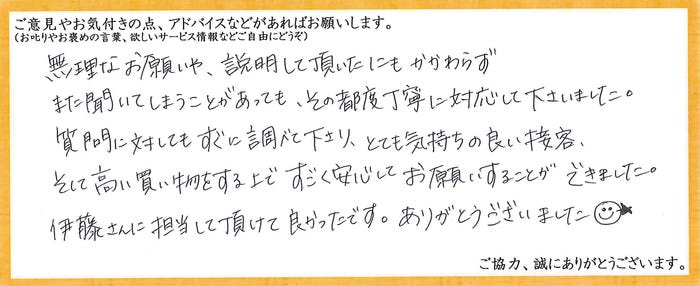 ご意見やお気付きの点、アドバイスなどがあればお願いします。
(お叱りやお褒めの言葉、欲しいサービス情報などご自由にどうぞ)
無理なお願いや、説明して頂いたにもかかわらず
また聞いてしまうことがあっても、その都度丁寧に対応して下さいました。
質問に対してもすぐに調べて下さり、とても気持ちの良い接客、
そして高い買い物をする上ですごく安心してお願いすることができました。
伊藤さんに担当して頂けて良かったです。ありがとうございました
ご協力、誠にありがとうございます。